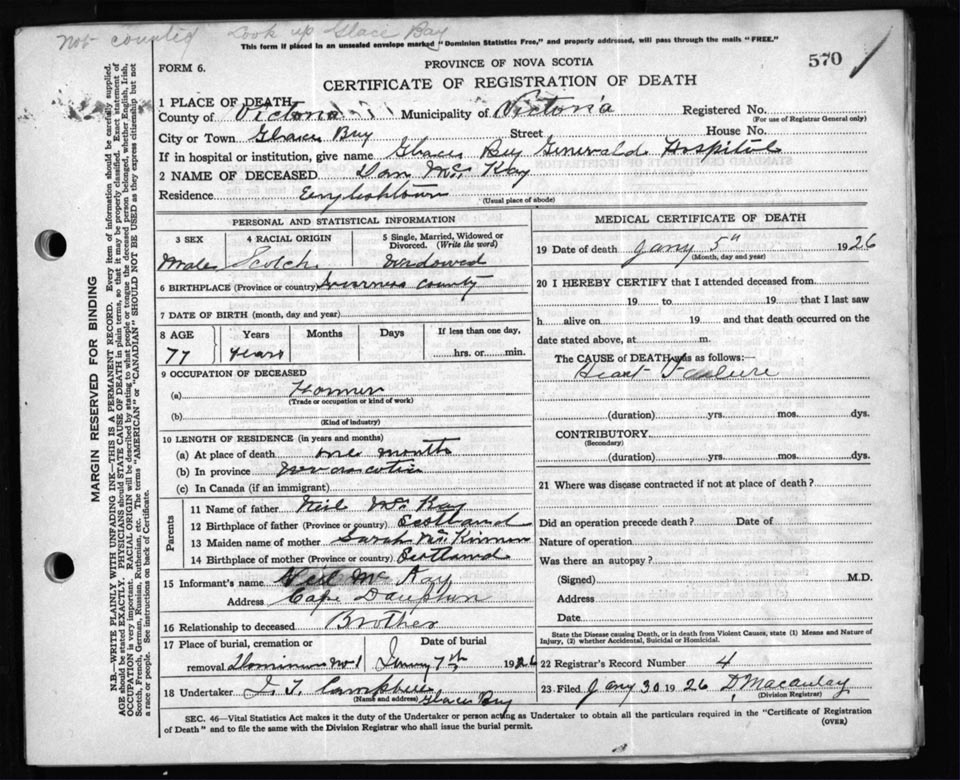 Not counted Look up Glace Bay
This form if placed in an unsealed envelope marked "Dominion Statistics Free," and properly addressed, will pass through the mails "FREE."
FORM 6.
PROVINCE OF NOVA SCOTIA
570
CERTIFICATE OF REGISTRATION OF DEATH
MARGIN RESERVED FOR BINDING
N.B.—WRITE PLAINLY WITH UNFADING INK—THIS IS A PERMANENT RECORD. Every item of information should be carefully supplied.
AGE should be stated EXACTLY. PHYSICIANS should STATE CAUSE OF DEATH in plain terms, so that it may be properly classified. Exact statement of
OCCUPATION is very important. RACIAL ORIGIN will be described by stating to what people or tongue the deceased person belonged, whether English, Irish,
Scotch, French, German, Russian, Ruthenian, etc. The terms "AMERICAN" or "CANADIAN" SHOULD NOT BE USED as they express citizenship but not
a race or people. See instructions on back of Certificate.
1 PLACE OF DEATH
County of Victoria Municipality of Victoria Registered No.
(For use of Registrar General only)
City or Town Glace Bay Street House No.
If in hospital or institution, give name Glace Bay Hospital
2 NAME OF DECEASED Dan Mc Kay
Residence Englishtown
(Usual place of abode)
PERSONAL AND STATISTICAL INFORMATION
3 SEX 4 RACIAL ORIGIN 5 Single, Married, Widowed or Divorced. (Write the word)
Male Scotch Widowed
6 BIRTHPLACE (Province or country) Inverness County
7 DATE OF BIRTH (month, day and year)
8 AGE Years Months Days If less than one day,
77 years hrs. or min.
9 OCCUPATION OF DECEASED
(a)
(Trade or occupation or kind of work)
(b)
(Kind of industry)
10 LENGTH OF RESIDENCE (in years and months)
(a) At place of death one month
(b) In province
(c) In Canada (if an immigrant)
Parents
11 Name of father Neil Mc Kay
12 Birthplace of father (Province or country) Scotland
13 Maiden name of mother Sarah Mc Kinnon
14 Birthplace of mother (Province or country) Scotland
15 Informant's name Neil Mc Kay
Address Cape Dauphin
16 Relationship to deceased Brother
17 Place of burial, cremation or Date of burial
removal Dominion No 1 7th 1926
18 Undertaker Campbell
(Name and address) Glace Bay
MEDICAL CERTIFICATE OF DEATH
19 Date of death Jany 5th 1926
(Month, day and year)
20 I HEREBY CERTIFY that I attended deceased from
19 to 19 that I last saw
h alive on 19 and that death occurred on the
date stated above, at m.
The CAUSE of DEATH was as follows:—
Heart Failure
(duration) yrs. mos. dys.
CONTRIBUTORY
(Secondary)
(duration) yrs. mos. dys.
21 Where was disease contracted if not at place of death?
Did an operation precede death? Date of
Nature of operation
Was there an autopsy?
(Signed) M.D.
Address
Date
State the Disease causing Death, or in death from Violent Causes, state (1) Means and Nature of
Injury, (2) whether Accidental, Suicidal or Homicidal.
22 Registrar's Record Number 4
23 Filed Jany 30 1926 D. Macaulay
(Division Registrar)
SEC. 46—Vital Statistics Act makes it the duty of the Undertaker or person acting as Undertaker to obtain all the particulars required in the "Certificate of Registration
of Death" and to file the same with the Division Registrar who shall issue the burial permit.
(OVER)